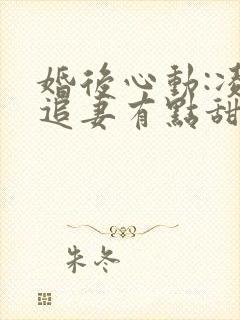 婚後心動:凌
追妻有點甜
朱冬